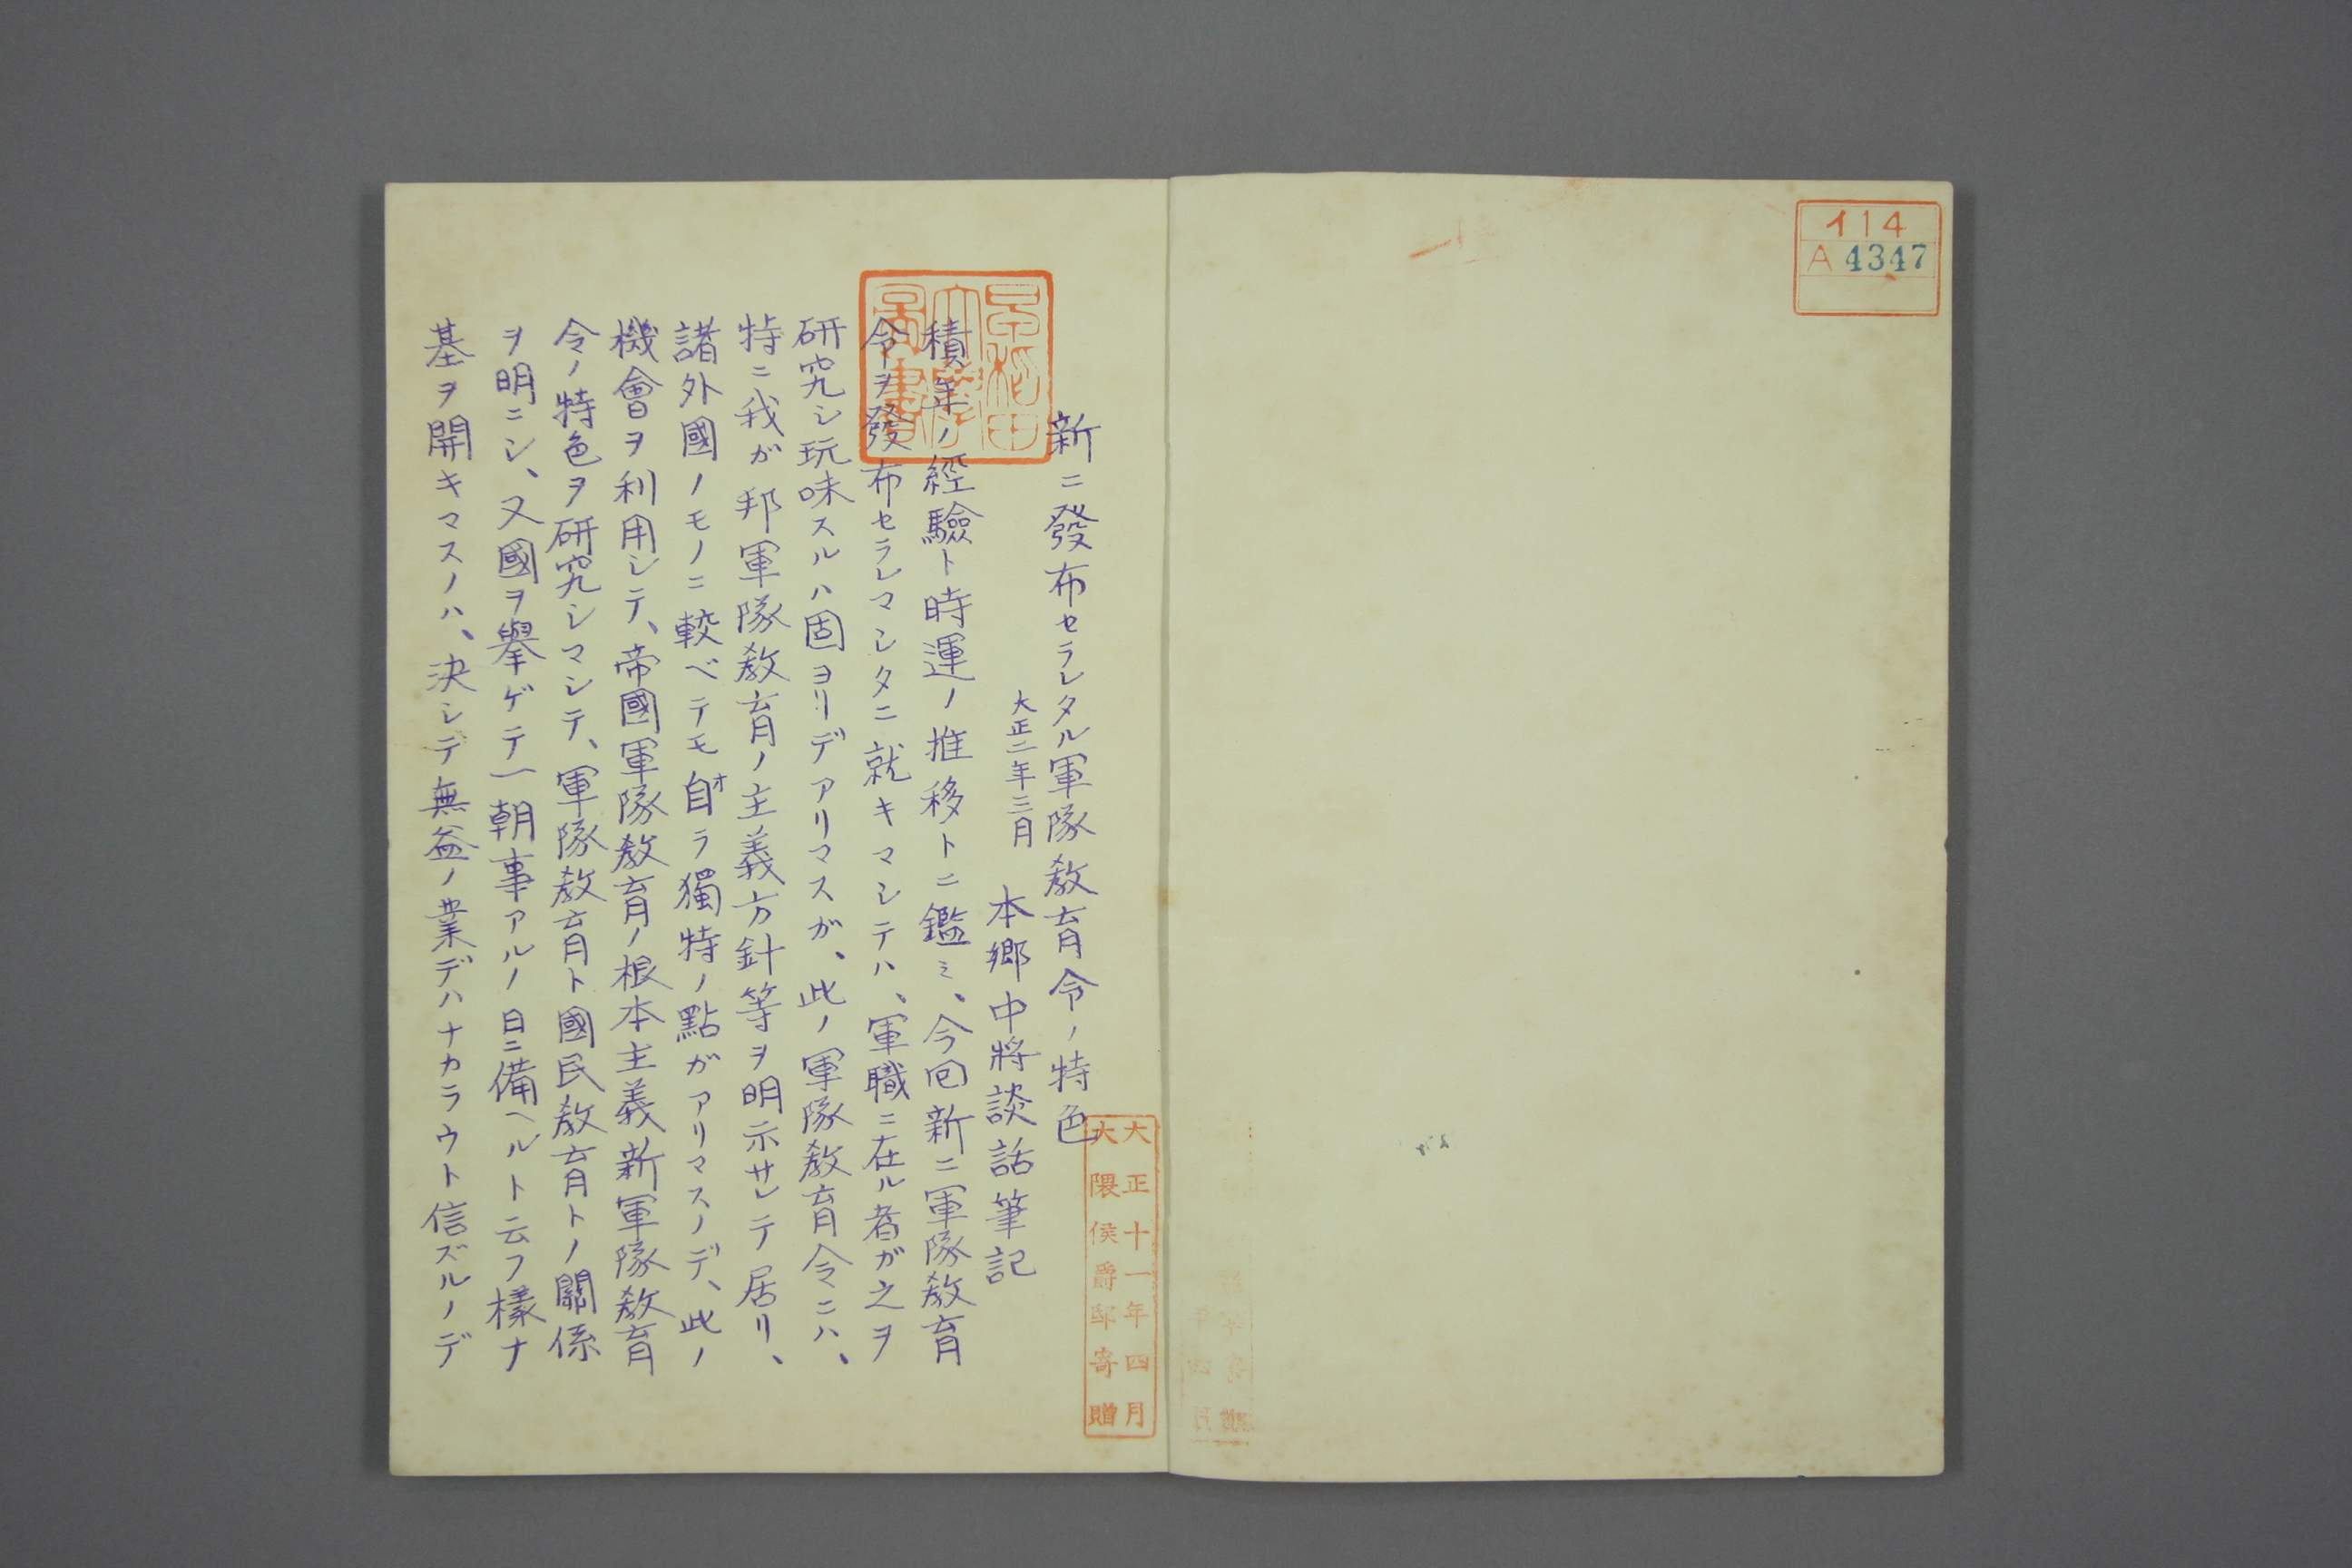 イ14
A 4347
新ニ發布セラレタル軍隊敎育令ノ特色
大正二年三月
本鄕中將談話筆記
積年ノ經驗ト時運ノ推移トニ鑑ミ、今回新ニ軍隊敎育
令ヲ發布セラレマシタニ就キマシテハ、軍職ニ在ル者ガ之ヲ
研究シ玩味スルハ固ヨリデアリマスガ、此ノ軍隊敎育令ニハ、
特ニ我ガ邦軍隊敎育ノ主義方針等ヲ明示サレテ居リ、
諸外國ノモノニ較ベテモ自オラ獨特ノ點ガアリマスノデ、此ノ
機會ヲ利用シテ、帝國軍隊敎育ノ根本主義新軍隊敎育
令ノ特色ヲ研究シマシテ、軍隊敎育ト國民敎育トノ關係
ヲ明ニシ、又國ヲ擧ゲテ一朝事アルノ日ニ備ヘルト云フ樣ナ
基ヲ開キマスノハ、決シテ無益ノ業デハナカラウト信ズルノデ
早稻田
大學
圖書
大正十一年四月
大隈侯爵邸寄贈